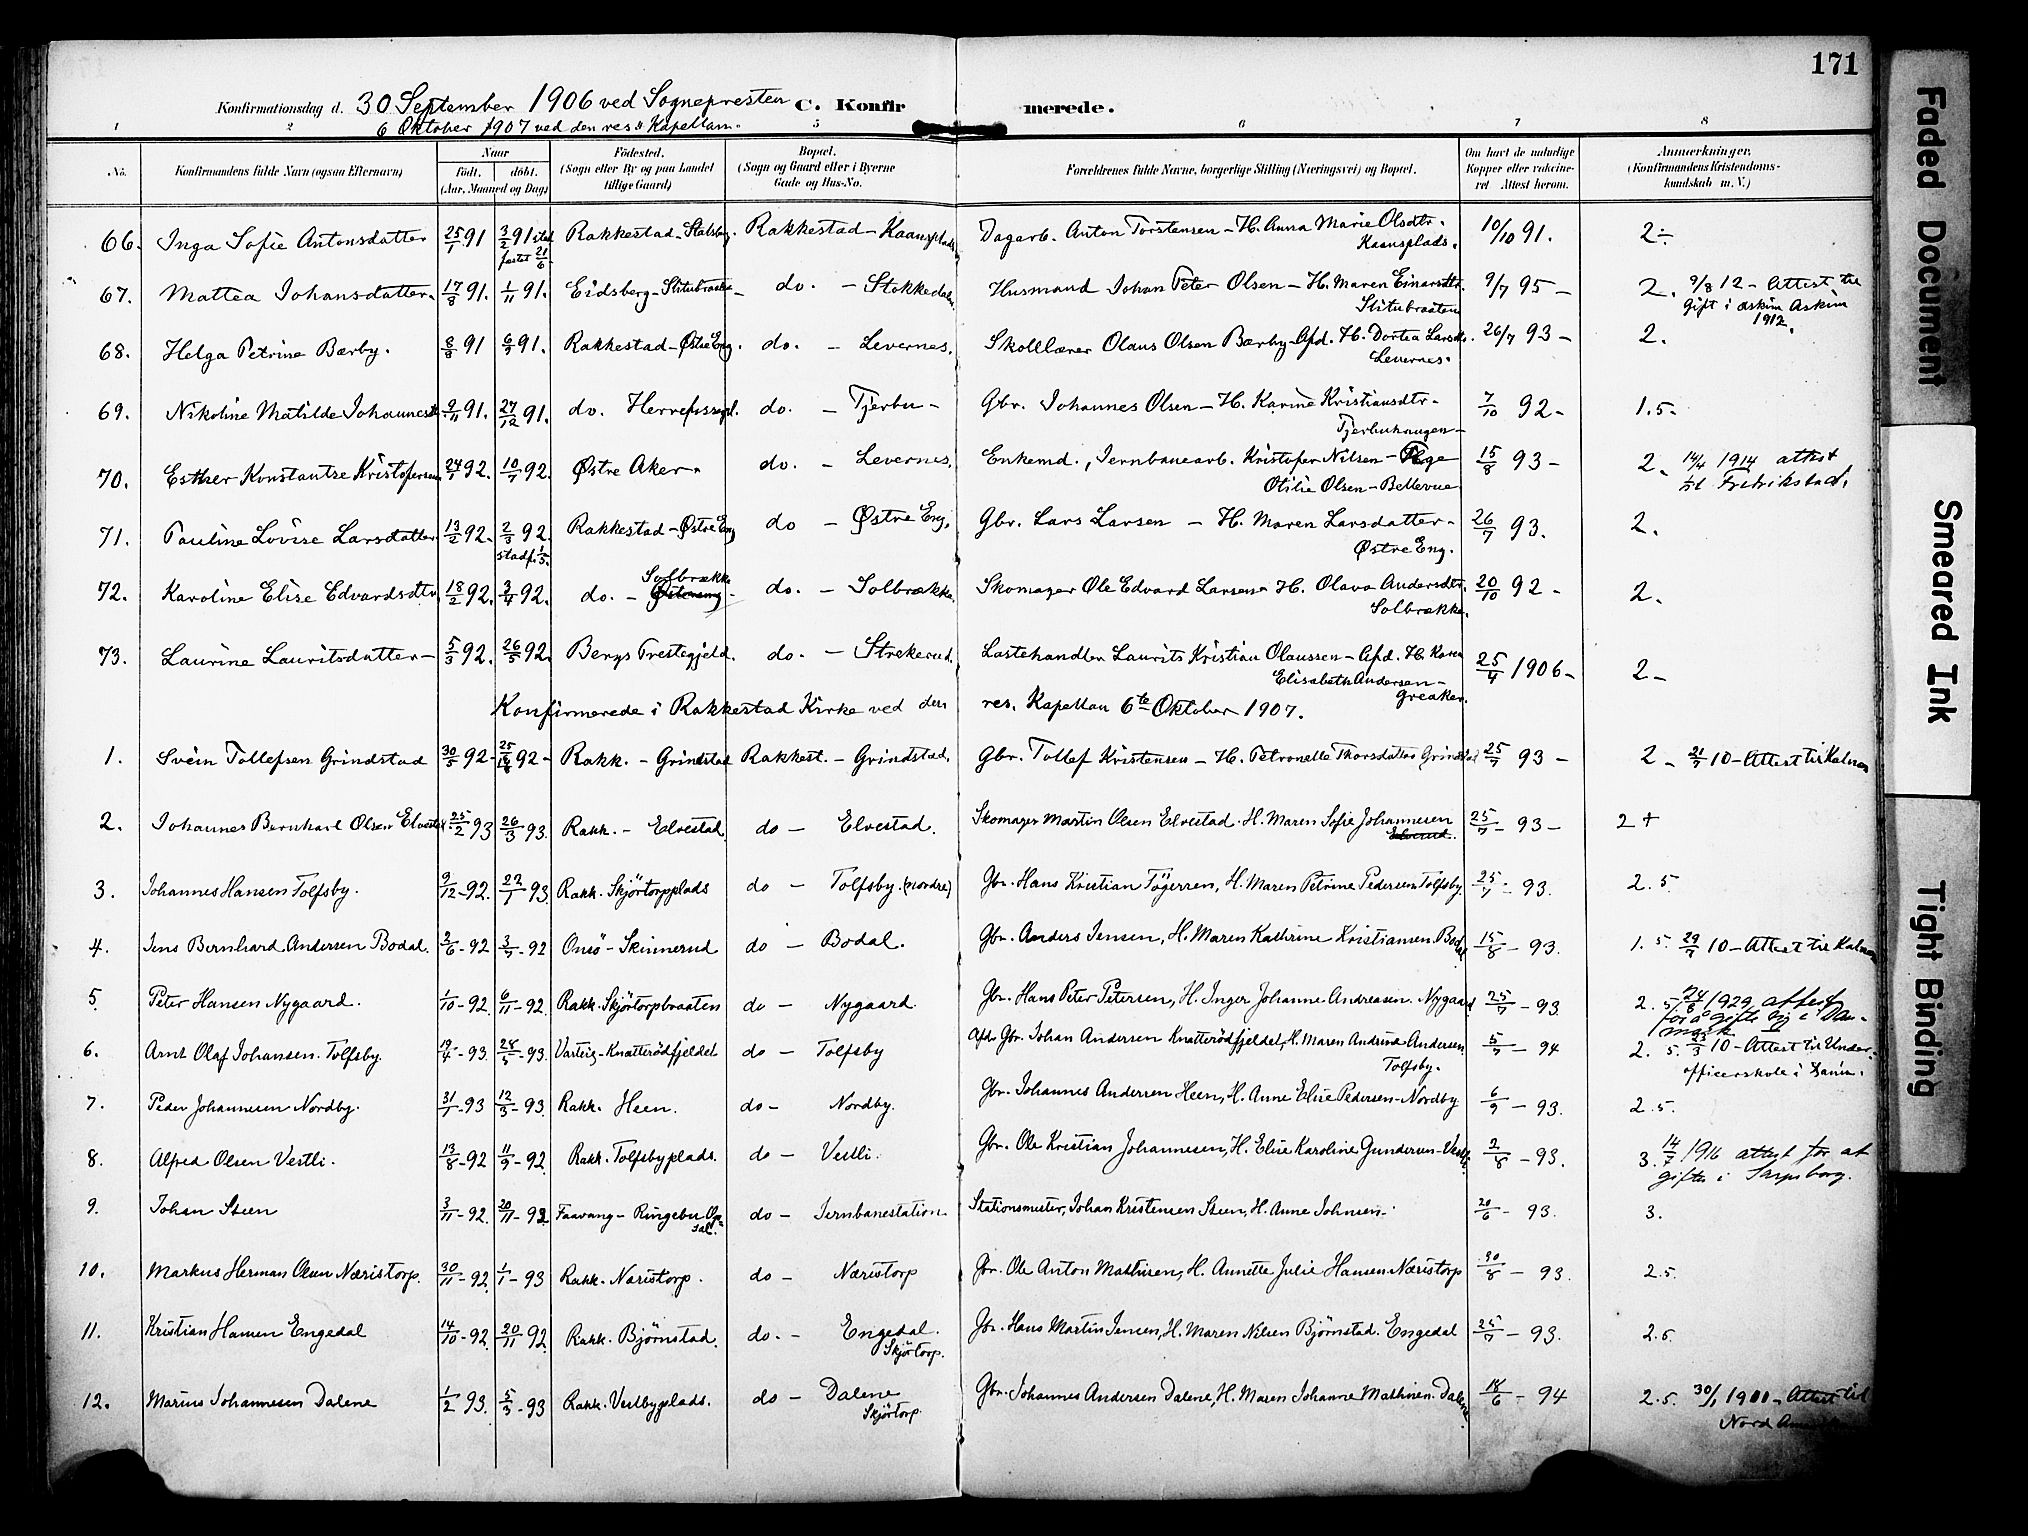 171
Konfirmationsdag d. 30 September 1906 ved Sognepresten C. Konfirmerede.
6 Oktober 1907 ved den res. Kapellan.
1 2 5 6 7 8
No. Konfirmandens fulde Navn (ogsaa Efternavn) Naar Født. døbt. (Aar, Maaned og Dag) Fødested. (Sogn eller By og paa Landet tillige Gaard) Bopæl. (Sogn og Gaard eller i Byerne Gade og Hus-No.) Forældrenes fulde Navne, borgerlige Stilling (Næringsvei) og Bopæl. Om havt de naturlige Kopper eller vaccineret Attest herom. Anmærkninger. (Konfirmandens Kristendomskundskab m. V.)
66. Inga Sofie Antonsdatter 25/1 91 3/2 91 Rakkestad - Rakkestad - Kaansplads Dagarb. Anton Torstensen - H. Anna Marie Olsdtr. 10/10 91. 2÷
21/6 Kaansplads.
67. Mattea Johansdatter. 17/8 91. 1/11 91. Eidsberg - Slitubraaten do. - Stokkedalen Husmand Johan Peter Olsen - H. Maren Einarsdtr. 9/7 95 - 2. 9/8 12 - Attest til
Slitubraaten gift i Askim Askim
1912.
68. Helga Petrine Bærby. 8/8 91 6/9 91. Rakkestad - Østre Eng. do. - Levernes. Skolelærer Olaus Olsen Bærby - Afd. H. Dortea Larsdtr. 26/7 93 - 2.
Levernes.
69. Nikoline Matilde Johannesdtr 9/11 91. 27/12 91. do. do. - Tjerbu - Gbr. Johannes Olsen - H. Karine Kristiansdtr - 7/10 92 - 1.5 -
Tjerbuhaugen -
70. Esther Konstantse Kristofersen 24/1 92. 10/7 92. Østre Aker. do. - Levernes. Enkemd., Jernbanearb. Kristofer Nilsen - Pige 15/8 93 - 2. 14/4 1914 attest
Otilie Olsen - Bellevue til Fredrikstad.
71. Pauline Lovise Larsdatter 13/2 92. 2/3 92. Rakkestad - Østre Eng do - Østre Eng. Gbr. Lars Larsen - H. Maren Larsdatter - 26/7 93. 2.
stadf. 1/5. Østre Eng.
72. Karoline Elise Edvardsdtr. 18/2 92. 3/4 92. do. - Solbrække do. - Solbrække. Skomager Ole Edvard Larsen - H. Olava Andersdtr. 20/10 92 - 2.
Solbrække.
73. Laurine Lauritsdatter - 5/3 92. 26/5 92. Bergs Prestegjeld. do. - Strekerud. Lastehandler Laurits Kristian Olaussen - Afd. H. Karen 25/4 1906 - 2 -
Elisabeth Andersen -
Greaker.
Konfirmerede i Rakkestad Kirke ved den res. Kapellan 6te Oktober 1907.
1. Svein Tollefsen Grindstad 30/5 92 - 92 - Rakk. - Grindstad Rakkest. - Grindstad. Gbr. Tollef Kristensen - H. Petronelle Thorsdatter Grindstad 25/7 93 - 2 - 21/7 10 - Attest til
2. Johannes Bernhard Olsen Elvestad 25/2 93 26/3 93. Rakk. - Elvestad. do - Elvestad. Skomager Martin Olsen Elvestad. H. Maren Sofie Johannesen 25/7 - 93 - 2 +
3. Johannes Hansen Tolfsby. 9/12 - 92. 22/1 93. Rakk. Skjörtorpplads do - Tolfsby. (nordre) Gbr. Hans Kristian Tögersen, H. Maren Petrine Pedersen Tolfsby. 25/7 - 93. 2.5
4. Jens Bernhard Andersen Bodal. 2/6 - 92 3/7 - 92 Onsö - Skinnerud do - Bodal. Gbr. Anders Jensen, H. Maren Kathrine Kristiansen. Bodal 15/8 - 93. 1.5. 29/7 10 - Attest til
5. Peter Hansen Nygaard. 1/10 - 92 6/11 - 92. Rakk. Skjörtorpbraaten do - Nygaard. Gbr. Hans Peter Petersen, H. Inger Johanne Andreasen. Nygaard 25/7 - 93. 2.5. 24/8 1929 attest
for å gifte sig i Danmark
6. Arnt Olaf Johansen. Tolfsby. 19/4 - 93. 28/5 - 93. Varteig - Knatterödfjeldet do - Tolfsby Afd. Gbr. Johan Andersen Knatterödfjeldet, H. Maren Andrine Andersen 5/7 - 94 2.5. 23/3 10 - Attest til Under-
Tolfsby. officerskole i
7. Peder Johannesen Nordby. 31/1 - 93 12/3 - 93. Rakk. Heen. do - Nordby. Gbr. Johannes Andersen Heen, H. Anne Elise Pedersen - Nordby 6/9 - 93. 2.5.
8. Alfred Olsen Vestli. 13/8 - 92 11/9 - 92. Rakk. Tolfsbyplads. do - Vestli. Gbr. Ole Kristian Johannesen, H. Elise Karoline Gundersen - Vestli 2/8 - 93. 3. 14/7 1916 attest for at
gifte i Sarpsborg.
9. Johan Steen 3/11 - 92. 20/11 - 92. Faavang - Ringebu Opsal. do - Jernbanestation Stationsmester, Johan Kristensen Steen, H. Anne Johnsen. 20/6 - 93. 3.
10. Markus Herman Olsen Næristorp. 30/11 - 92. 1/1 - 93 Rakk. Næristorp. do - Næristorp Gbr. Ole Anton Mathisen, H. Annette Julie Hansen Næristorp 30/8 - 93. 2.5.
11. Kristian Hansen Engedal 14/10 - 92. 20/11 92. Rakk. Bjørnstad. do. - Engedal. Gbr. Hans Martin Jensen, H. Maren Nilsen Bjørnstad. Engedal 25/7 - 93. 2.5.
Skjörtorp.
12. Marius Johannesen Dalene 1/2 93. 5/3 - 93 Rakk. Vestbyplads. do - Dalene Gbr. Johannes Andersen Dalene, H. Maren Johanne Mathisen. Dalene. 18/6 - 94 2.5. 30/1 1911 - Attest til
Skjörtorp. Nord
Faded Document
Smeared Ink
Tight Binding